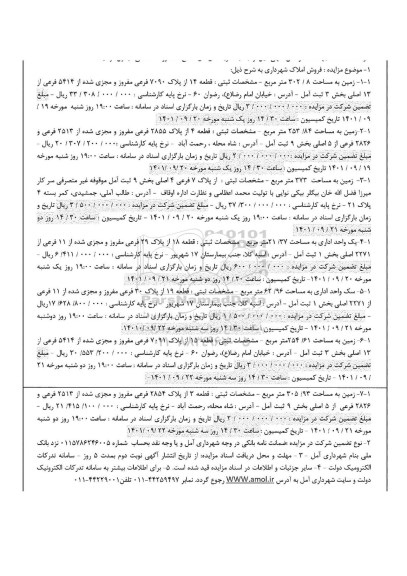 ۱- موضوع مزایده : فروش املاک شهرداری به شرح ذیل:
۱-۱- زمین به مساحت ۸ / ۳۰۲ متر مربع - مشخصات ثبتی : قطعه ۱۴ از پلاک ۷۰۹۰ فرعی مفروز و مجزی شده از ۵۴۱۴ فرعی از
۱۳ اصلی بخش ۳ ثبت آمل - آدرس : خیابان امام رضا(ع)، رضوان ۶۰ - نرخ پایه کارشناسی : ۰۰۰ / ۰۰۰ / ۳۰۸ / ۳۳ ریال - مبلغ
تضمین شرکت در مزایده : ۰۰۰ / ۰۰۰ / ۰۰۰ / ۳ ریال تاریخ و زمان بارگزاری اسناد در سامانه : ساعت ۱۹:۰۰ روز شنبه مورخه ۱۹ /
۰۹ / ۱۴۰۱ تاریخ کمیسیون : ساعت ۳۰ / ۱۴ روز یک شنبه مورخه ۲۰ / ۰۹ / ۱۴۰۱
۱-۲- زمین به مساحت ۸۴/ ۲۵۳ متر مربع - مشخصات ثبتی : قطعه ۴ از پلاک ۲۸۵۵ فرعی مفروز و مجزی شده از ۲۵۱۳ فرعی و
۲۸۲۶ فرعی از ۵ اصلی بخش ۹ ثبت آمل - آدرس : شاه محله ، رحمت آباد - نرخ پایه کارشناسی : ۰۰۰/ ۲۰۰/ ۳۰۷/ ۲۰ ریال -
مبلغ تضمین شرکت در مزایده : ۰۰۰ / ۰۰۰ / ۰۰۰ / ۲ ریال تاریخ و زمان بارگزاری اسناد در سامانه : ساعت ۱۹:۰۰ روز شنبه مورخه
۱۹ / ۰۹ / ۱۴۰۱ تاریخ کمیسیون : ساعت ۳۰ / ۱۴ روز یک شنبه مورخه ۲۰ / ۰۹ / ۱۴۰۱
۱-۳- زمین به مساحت ۳۷۳ متر مربع - مشخصات ثبتی : از پلاک ۷ فرعی ۴ اصلی بخش ۹ ثبت آمل موقوفه غیر متصرفی سر کار
میرزا فضل الله خان بیگلر بیگی نوایی با تولیت محمد اعظامی و نظارت اداره اوقاف - آدرس : طالب آملی، جمشیدی، کمر بسته ۴
پلاک ۲۱ - نرخ پایه کارشناسی : ۰۰۰ / ۰۰۰ / ۳۰۰/ ۳۷ ریال - مبلغ تضمین شرکت در مزایده : ۰۰۰ / ۰۰۰ / ۵۰۰ / ۳ ریال تاریخ و
زمان بارگزاری اسناد در سامانه : ساعت ۱۹:۰۰ روز یک شنبه مورخه ۲۰ / ۰۹ / ۱۴۰۱ - تاریخ کمیسیون : ساعت ۳۰ / ۱۴ روز دو
شنبه مورخه ۲۱ / ۰۹ / ۱۴۰۱
۱-۴- یک واحد اداری به مساحت ۳۷/ ۲۱متر مربع - مشخصات ثبتی : قطعه ۱۸ از پلاک ۲۹ فرعی مفروز و مجزی شده از ۱۱ فرعی از
۲۲۷۱ اصلی بخش ۱ ثبت آمل - آدرس : اسپه کلا، جنب بیمارستان ۱۷ شهریور - نرخ پایه کارشناسی : ۰۰۰ / ۰۰۰ / ۴۱۱/ ۶ ریال -
مبلغ تضمین شرکت در مزایده : ۰۰۰ / ۰۰۰ / ۶۰۰ ریال تاریخ و زمان بارگزاری اسناد در سامانه : ساعت ۱۹:۰۰ روز یک شنبه
مورخه ۲۰ / ۰۹ / ۱۴۰۱ - تاریخ کمیسیون : ساعت ۳۰ / ۱۴ روز دو شنبه مورخه ۲۱ / ۰۹ / ۱۴۰۱
۱-۵- یک واحد اداری به مساحت ۹۶/ ۶۲ متر مربع - مشخصات ثبتی : قطعه ۱۹ از پلاک ۳۰ فرعی مفروز و مجزی شده از ۱۱ فرعی
از ۲۲۷۱ اصلی بخش ۱ ثبت آمل - آدرس : اسپه کلا، جنب بیمارستان ۱۷ شهریور - نرخ پایه کارشناسی : ۰۰۰ / ۸۰۰/ ۶۲۸/ ۱۷ریال
- مبلغ تضمین شرکت در مزایده : ۰۰۰ / ۰۰۰ / ۵۰۰ / ۱ ریال تاریخ و زمان بارگزاری اسناد در سامانه : ساعت ۱۹:۰۰ روز دوشنبه
مورخه ۲۱ / ۰۹ / ۱۴۰۱ - تاریخ کمیسیون : ساعت ۳۰ / ۱۴ روز سه شنبه مورخه ۲۲ /۰۹ /۱۴۰۱
۱-۶- زمین به مساحت ۶۱/ ۲۵۴متر مربع - مشخصات ثبتی : قطعه ۱۵ از پلاک ۷۰۹۱ فرعی مفروز و مجزی شده از ۵۴۱۴ فرعی از
۱۳ اصلی بخش ۳ ثبت آمل - آدرس : خیابان امام رضا(ع)، رضوان ۶۰ - نرخ پایه کارشناسی : ۰۰۰ / ۲۰۰/ ۵۵۳/ ۳۰ ریال - مبلغ
تضمین شرکت در مزایده : ۰۰۰ / ۰۰۰ / ۰۰۰ / ۳ ریال تاریخ و زمان بارگزاری اسناد در سامانه : ساعت ۱۹:۰۰ روز دو شنبه مورخه ۲۱
/ ۰۹ / ۱۴۰۱ - تاریخ کمیسیون : ساعت ۳۰ / ۱۴ روز سه شنبه مورخه ۲۲ / ۰۹ / ۱۴۰۱-
۱-۷- زمین به مساحت ۹۳/ ۳۰۵ متر مربع - مشخصات ثبتی : قطعه ۳ از پلاک ۲۸۵۴ فرعی مفروز و مجزی شده از ۲۵۱۳ فرعی و
۲۸۲۶ فرعی از ۵ اصلی بخش ۹ ثبت آمل - آدرس : شاه محله، رحمت آباد - نرخ پایه کارشناسی : ۰۰۰ / ۱۰۰/ ۴۱۵/ ۲۱ ریال -
مبلغ تضمین شرکت در مزایده : ۰۰۰ / ۰۰۰ / ۰۰۰ / ۲ ریال تاریخ و زمان بارگزاری اسناد در سامانه : ساعت ۱۹:۰۰ روز دو شنبه
مورخه ۲۱ / ۰۹ / ۱۴۰۱ - تاریخ کمیسیون : ساعت ۳۰ / ۱۴ روز سه شنبه مورخه ۲۲ /۰۹ /۱۴۰۱
۲- نوع تضمین شرکت در مزایده ضمانت نامه بانکی در وجه شهرداری آمل و یا وجه نقد بحساب شماره ۰۱۱۵۷۸۶۲۴۶۰۰۵ نزد بانک
ملی بنام شهرداری آمل - ۳ - مهلت و محل دریافت اسناد مزایده: از تاریخ انتشار آگهی نوبت دوم بمدت ۵ روز - سامانه تدرکات
الکترونیک دولت - ۴- سایر جزئیات و اطلاعات در اسناد مزایده قید شده است. ۵- برای اطلاعات بیشتر به سامانه تدرکات الکترونیک
دولت و سایت شهرداری آمل به آدرس WWW.amol.ir رجوع گردد. نمابر ۴۴۲۵۹۴۹۷-۰۱۱ تلفن۴۴۲۲۹۰۰۱-۰۱۱